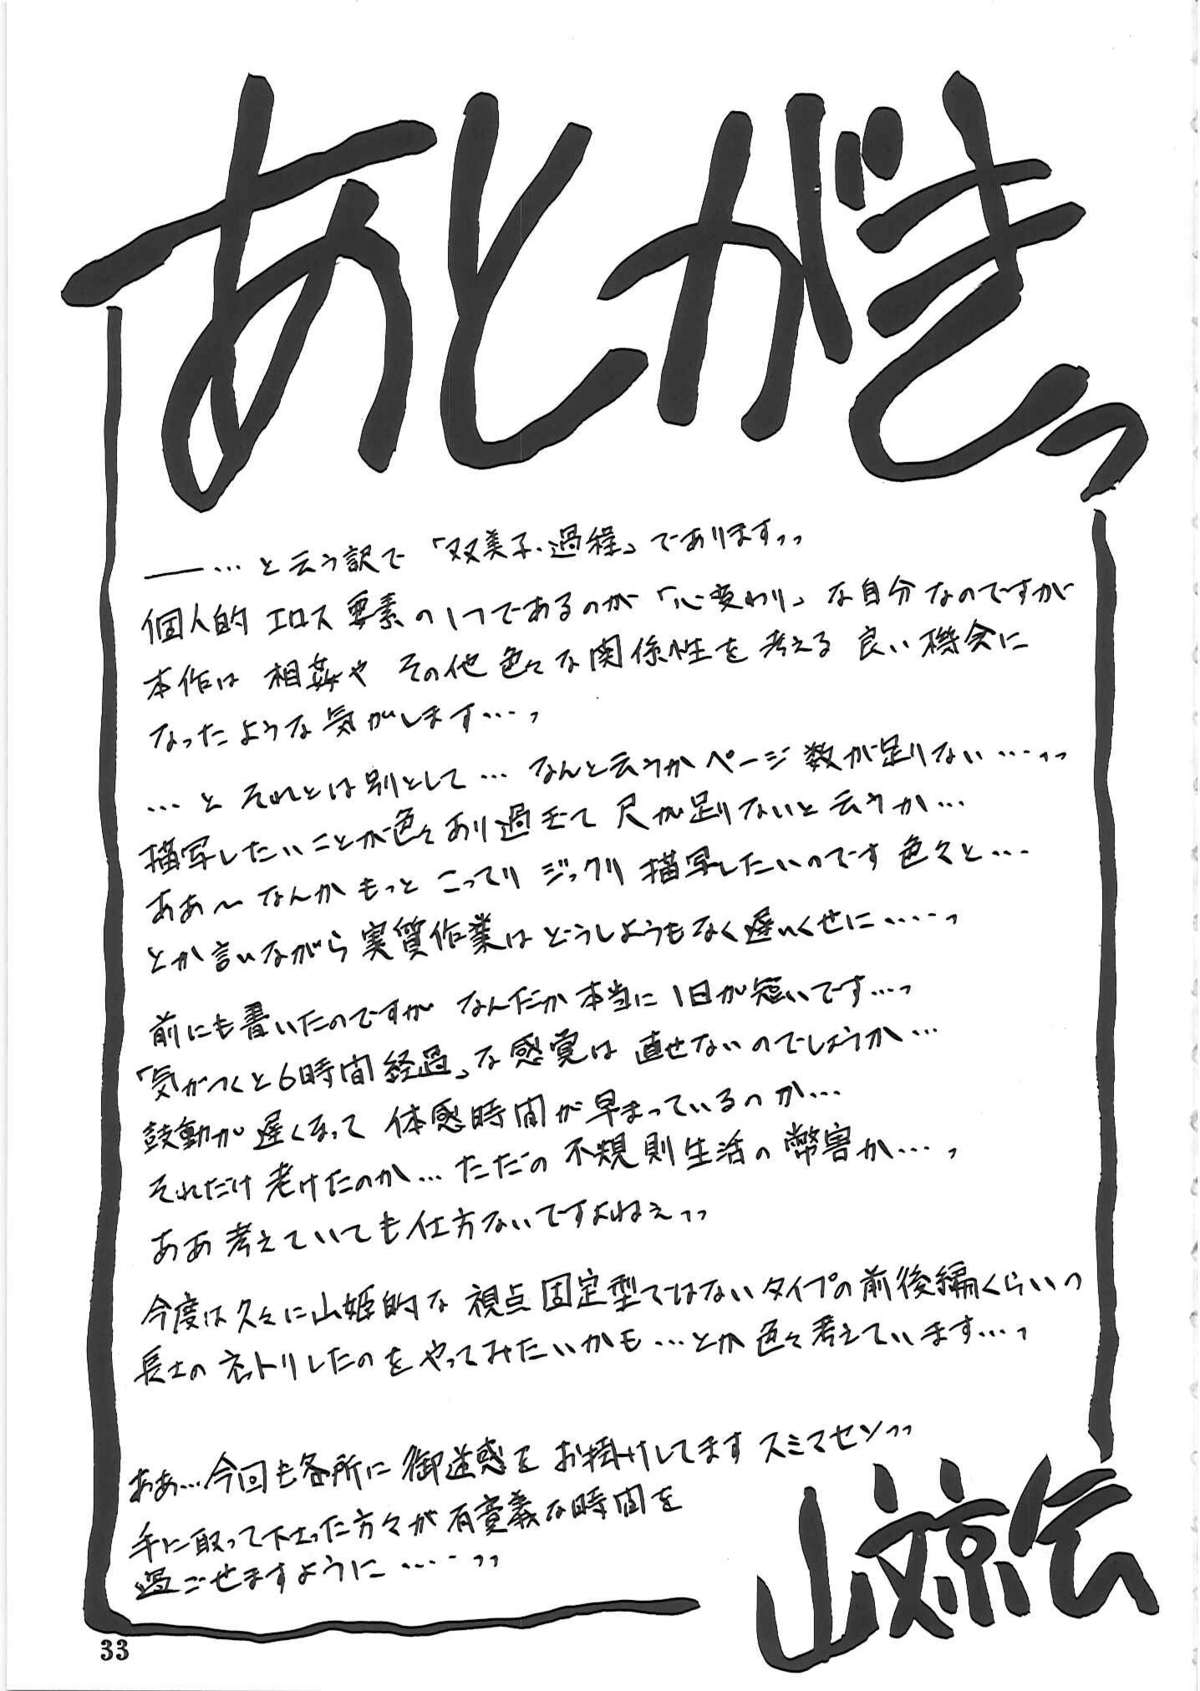 あとがきっ
――…と云う訳で「双美子・過程」でありますっっ
個人的エロス要素の1つであるのが「心変わり」な自分なのですが
本作は相姦やその他色々な関係性を考える良い機会に
なったような気がします…っ
…とそれとは別として…なんと云うかページ数が足りない…っっ
描写したいことが色々あり過ぎて尺が足りないと云うか…
ああ～なんかもっとこってりジックリ描写したいのです色々と…
とか言いながら実質作業はどうしようもなく遅いくせに……っ
前にも書いたのですがなんだか本当に1日が短いです…っ
「気がつくと6時間経過」な感覚は直せないのでしょうか…
鼓動が遅くなって体感時間が早まっているのか…
それだけ老けたのか…ただの不規則生活の幣害か…っ
ああ考えていても仕方ないですよねぇっっ
今度は久々に山姫的な視点固定型ではないタイプの前後編くらいっ
長土のネトリしたのをやってみたいかも…とか色々考えています…っ
ああ…今回も各所に御迷惑をお掛けしてますスミマセンっっ
手に取って下さった方々が有意義な時間を
過ごせますように……っっ
山文京伝
33